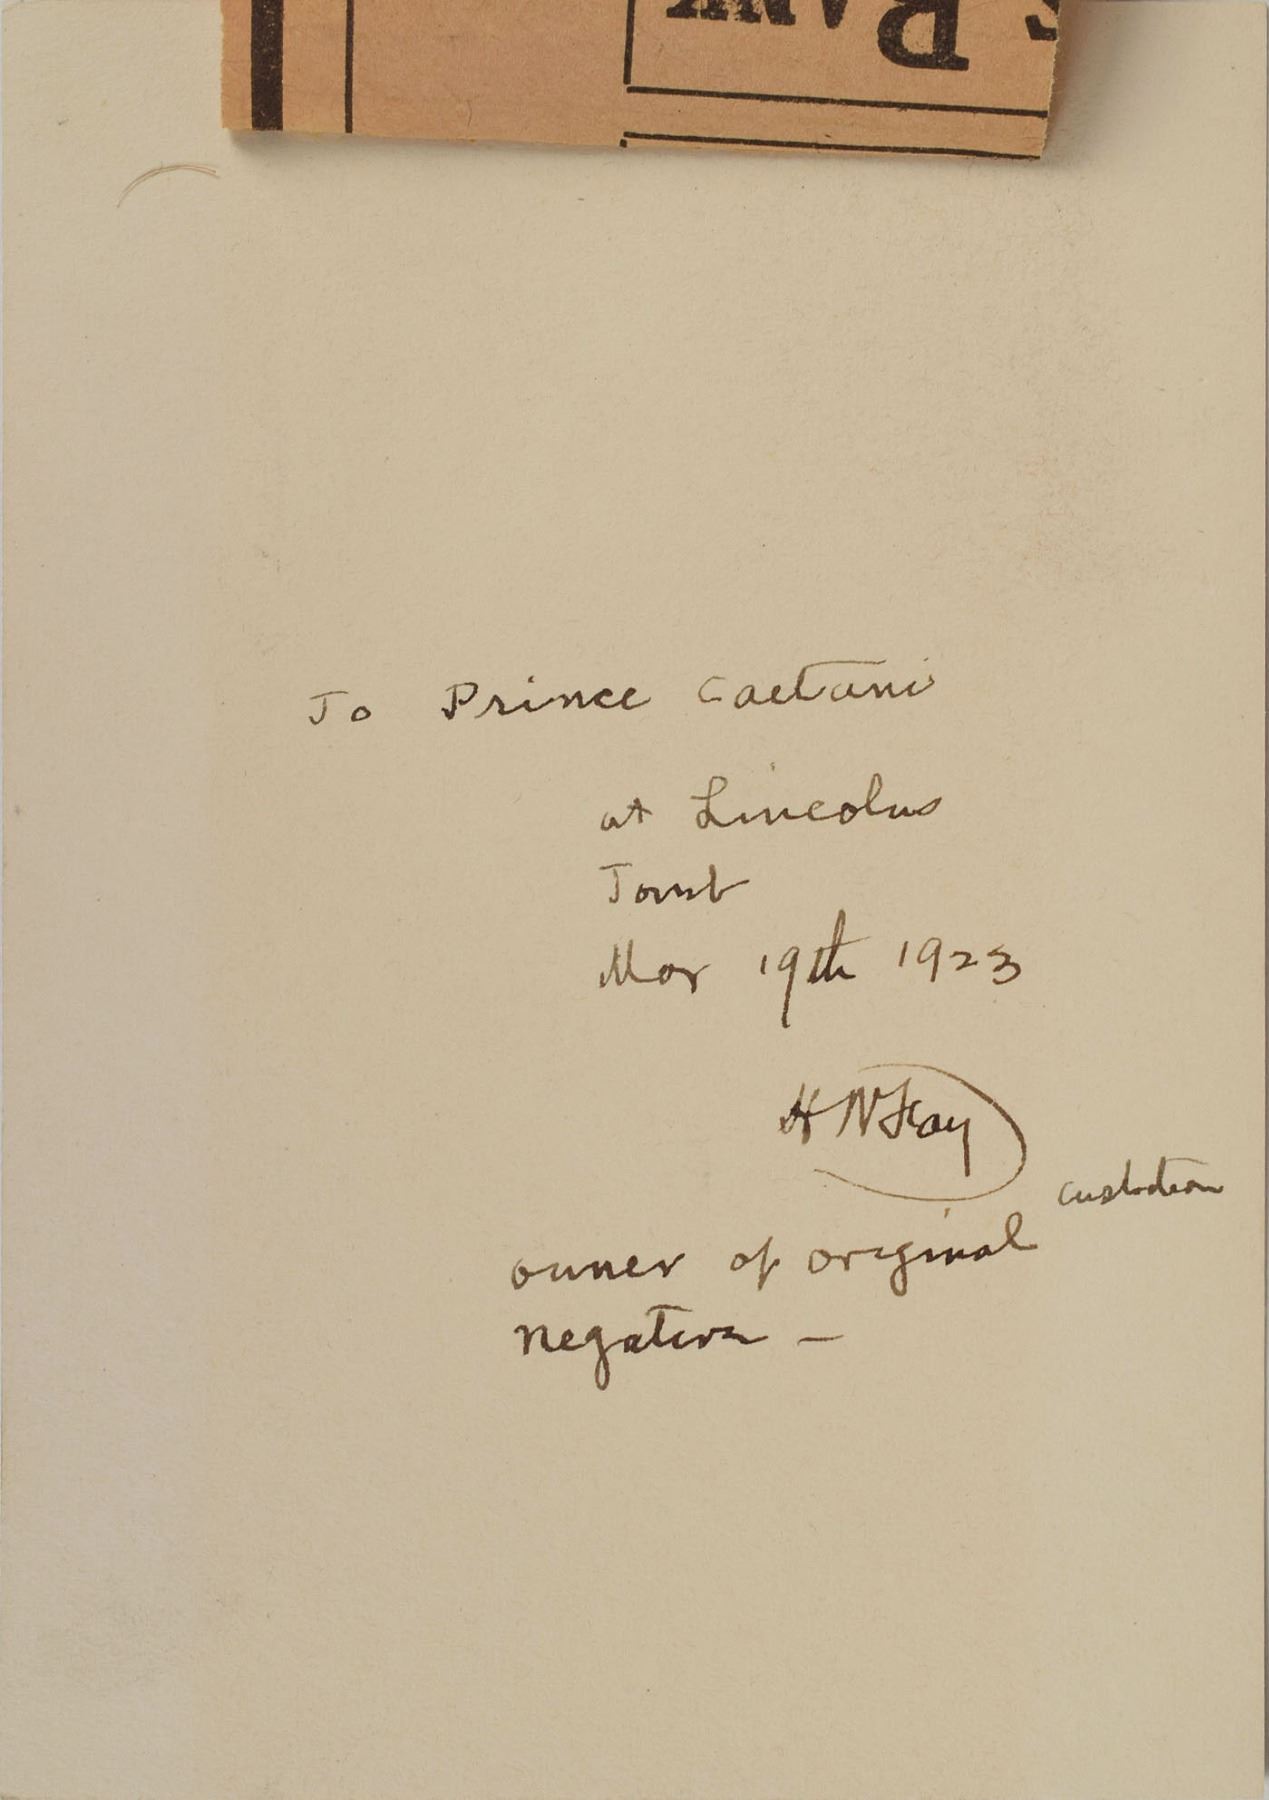 S BANK
To Prince Caetani
at Lincolns
Tomb
Mar 19th 1923
H W Fay
custodian
owner of original
negative –